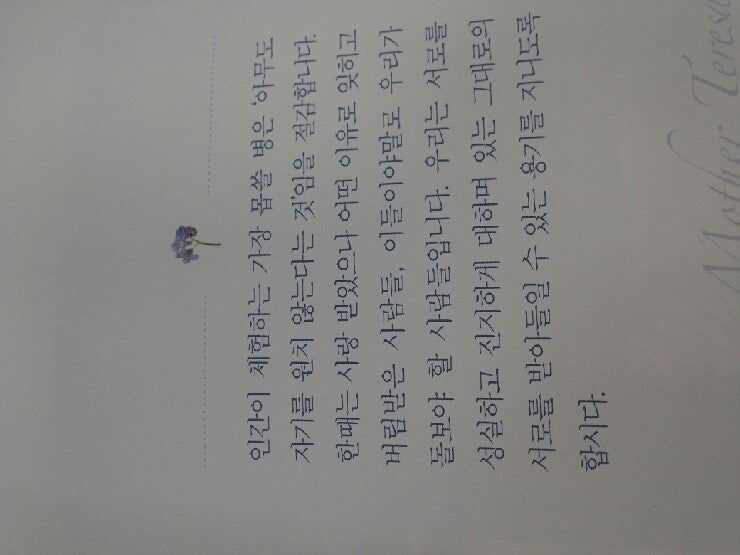 인간이 체험하는 가장 몹쓸 병은 '아무도
자기를 원치 않는다는 것'임을 절감합니다.
한때는 사랑 받았으나 어떤 이유로 잊히고
버림받은 사람들, 이들이야말로 우리가
돌보아야 할 사람들입니다. 우리는 서로를
성실하고 진지하게 대하며 있는 그대로의
서로를 받아들일 수 있는 용기를 지니도록
합시다.
Mother Teresa